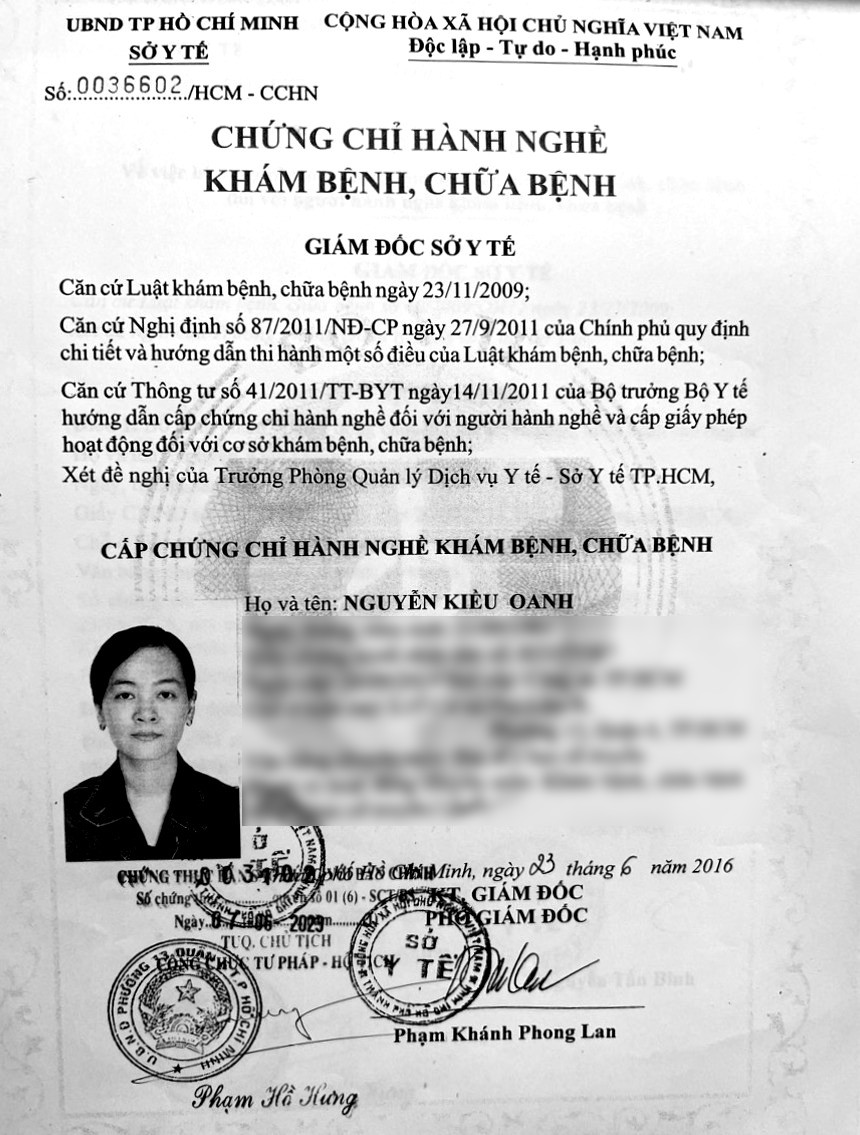 UBND TP HỒ CHÍ MINH
SỞ Y TẾ
CỘNG HÒA XÃ HỘI CHỦ NGHĨA VIỆT NAM
Độc lập - Tự do - Hạnh phúc
Số:0036602/HCM - CCHN
CHỨNG CHỈ HÀNH NGHỀ
KHÁM BỆNH, CHỮA BỆNH
GIÁM ĐỐC SỞ Y TẾ
Căn cứ Luật khám bệnh, chữa bệnh ngày 23/11/2009;
Căn cứ Nghị định số 87/2011/NĐ-CP ngày 27/9/2011 của Chính phủ quy định
chi tiết và hướng dẫn thi hành một số điều của Luật khám bệnh, chữa bệnh;
Căn cứ Thông tư số 41/2011/TT-BYT ngày14/11/2011 của Bộ trưởng Bộ Y tế
hướng dẫn cấp chứng chỉ hành nghề đối với người hành nghề và cấp giấy phép
hoạt động đối với cơ sở khám bệnh, chữa bệnh;
Xét đề nghị của Trưởng Phòng Quản lý Dịch vụ Y tế - Sở Y tế TP.HCM,
CẤP CHỨNG CHỈ HÀNH NGHỀ KHÁM BỆNH, CHỮA BỆNH
Họ và tên: NGUYỄN KIỀU OANH
Minh, ngày 23 tháng 6 năm 2016
KT. GIÁM ĐỐC
PHÓ GIÁM ĐỐC
SỞ
Y TẾ
Phạm Khánh Phong Lan
CHỨNG THỰC
Số chứng
số 01 (6) - SCT/BS
Ngày
06 - 2023
TUQ. CHỦ TỊCH
CÔNG CHỨC TƯ PHÁP - HỘ TỊCH
U.B.N.D PHƯỜNG 13, QUẬN
T.P HỒ CHÍ MINH
Phạm Hồ Hưng